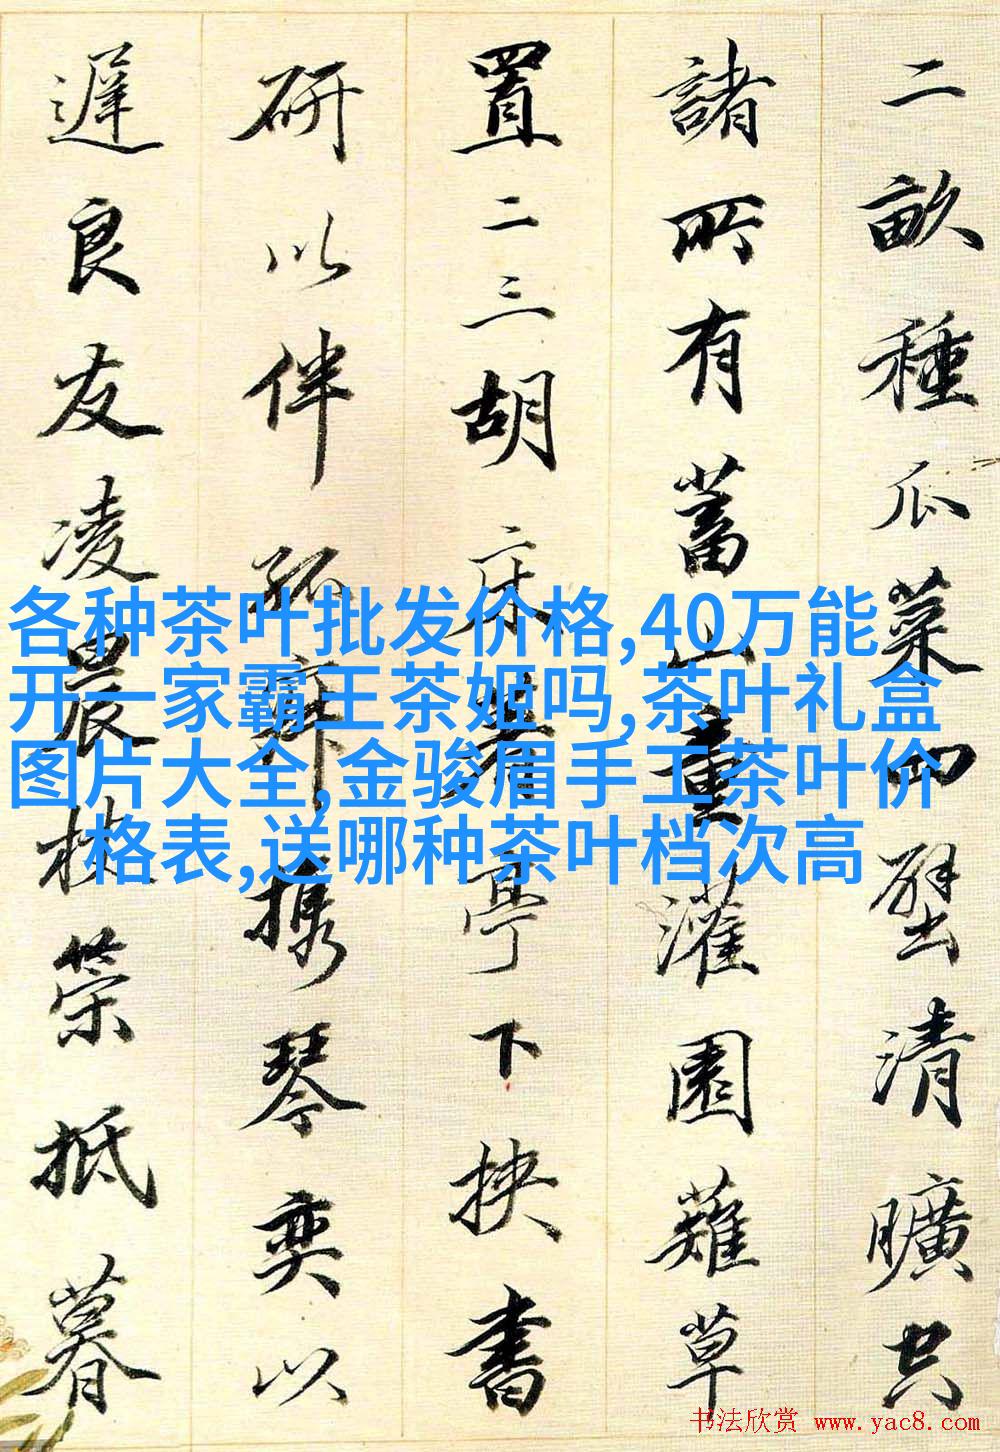 二畝種瓜菜四壁清曠空
諸所有蓄山童灌園薙草
置二三胡床着亭下挟書
研以伴孤寂携琴奕以
遲良友凌晨杖策抵暮
各种茶叶批发价格,40万能
开一家霸王茶姬吗,茶叶礼盒
图片大全,金骏眉手工茶叶价
格表,送哪种茶叶档次高
书法欣赏 www.yac8.com